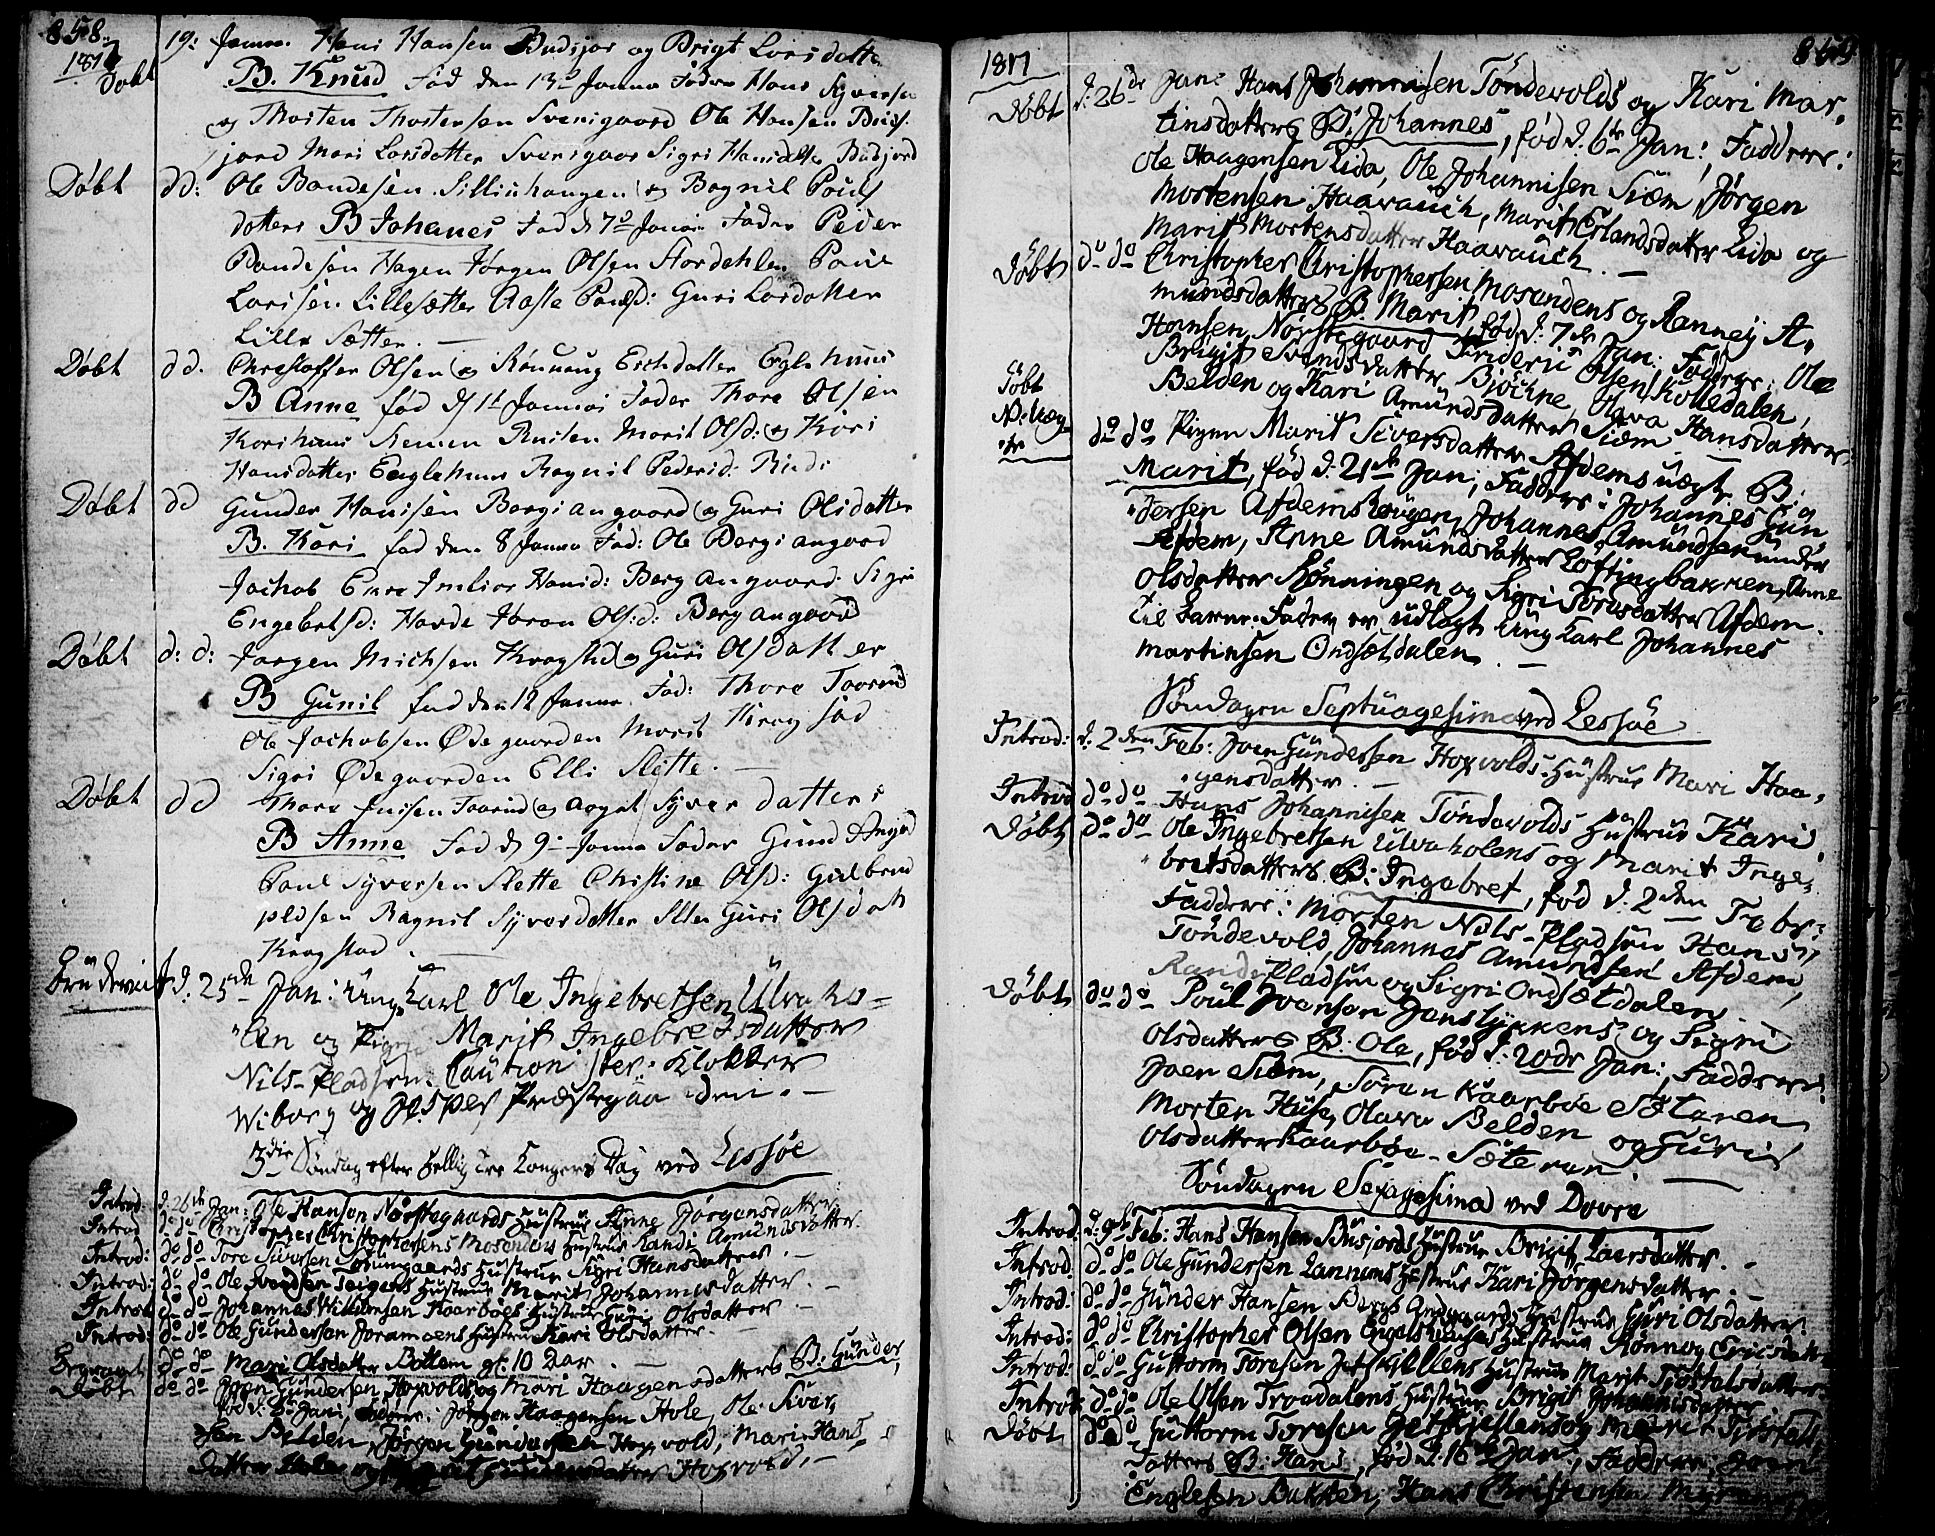 858.
1817
Døbt 19: Janua. Hans Hansen Budsjor og Brigt Larsdatte
B. Knud Fød den 13de Janua Fadder Hans Syversen
og Thosten Thostensen Svensgaard Ole Hansen Buds
jord Mari Larsdatter Svensgaar Sigri Hansdatter Budsjord
Døbt dd: Ole Baardesen Silliuhaugen og Bagnil Pouls
datters B Johanes Fød d 7de Janua Fader Peder
Baardesen Hagen Jørgen Olsen Stordahlen Paul
Larssen Lillesætter Aaste Poulsd: Guri Larsdatter
Lille Sætter.
Døbt dd. Chrestoffer Olsen og Rønnaug Erichdatter Eglehuus
B Anne fød d 1t Janua Fader Thore Olsen
Korshuus Simen Rusten Marit Olsd: og Kari
Hansdatter Englehuus Ragnil Pedersd:
Døbt dd Gunder Hansen Bergsangaard og Guri Olsdatter
B. Kari fød den 8 Janua Fad: Ole Bergsangaard
Jachob Enre Imbior Hansd: Berg angaard Sigri
Engebretsd: Havde Jøran Olsd: Berg angaard
Døbt d: d: Jørgen Michsen Kragstd og Guri Olsdatter
B Gunil fød den 12 Janua. Fad: Thore Taarud
Ole Jachobsen Ødegaarden Marit Kragstad
Sigri Ødegaarden Elli Slette.
Døbt dd Thore Jensen Taarud og Aagot Syverdatters
B Anne Fød d 9de Janua Fader Gund Angard
Paul Syversen Slette Christine Olsd: Gulbrand
plasen Ragnil Syverdatter Slte Guri Olsdatt
Kragstad.
Brudeviet d. 25de Jan: Ung Karl Ole Ingebretsen Ulvaho-
len og Pigen Marit Ingebretsdatter
Nils-Pladsen. Caution ster: Klokker
Wiborg og Jesper Præstegaarden.
3die Søndag efter Hellig tre Kongers Dag ved Lessøe
Introd d. 26de Jan: Ole Hansen Nørstegaards Hustrue Anne Jørgensdatter
Introd do do Christopher Christophersens Mosendens Hustrue Randi Amundsdatter.
Introd: do do Tore Siversen Sørumgaards Hustrue Sigri Hansdatter.
Introd: do do Ole Svendsen Teigens Hustrue Marit Johannesdatter.
Introd do do Johannes Willumsen Kaarboes Hustrue Guri Olsdatter
Introd: do do Ole Gundersen Joramoens Hustrue Kari Olsdatter.
Begravet do do Mari Olsdatter Bottem gl: 10 Aar.
Døbt do do Joen Gundersen Hoxvolds og Mari Haagensdatters B: Gunder,
fød d: 8de Jan:, Faddere: Jørgen Haagensen Hole, Ole Siver,
sen Belden, Jørgen Gundersen Hoxvold, Mari Hans
datter Hole og Marit Gundersdatter Hoxvold.
1817
859
Døbt d. 26de Jan: Hans Johannisen Tøndevolds og Kari Mar,
tinsdatters B: Johannes, fød d. 6te Jan:, Faddere:
Ole Haagensen Lida, Ole Johannisen Siem, Jørgen
Mortensen Haavauch, Marit Erlandsdatter Lida og
Marit Mortensdatter Haavauch.
Døbt do do Christopher Christophersen Mosendens og Ranney A,
mundsdatters B. Marit, fød d: 7de Jan: Faddere: Ole
Hansen Nørstegaard Frideric Olsen Kolledalen,
Brigit Svendsdatter Biøckne, Olava Hansdatter
Belden og Kari Amundsdatter Siem.
Døbt
N: Uæg,
te do do Pigen Marit Siversdatter Afdems uægte B.
Marit, fød d. 21de Jan; Faddere: Johannes Gun
dersen Afdemshougen, Johannes Amundsen under
Afdem, Anne Amundsdatter Loftingbakken, Anne
Olsdatter Rønningen og Sigri Toresdatter Afdem.
Til Barne-Fader er udlagt Ung Karl Johannes
Martinsen Ondsetdalen.
Søndagen Septuagesima ved Lessøe
Introd: d. 2den Feb: Joen Gundersen Hoxvolds Hustrue Mari Haa,
gensdatter.
Introd do do Hans Johannisen Tøndevolds Hustrue Kari.
Døbt do do Ole Ingebretsen Ulvaholens og Marit Inge,
bretsdatters B: Ingebret, fød d. 2den Febr:
Faddere: Morten Nils-Pladsen, Hans
Tøndevold, Johannes Amundsen Afdem,
Randi Pladsen og Sigri Ondsetdalen.
Døbt do do Poul Joensen Jonslykkens og Sigri
Olsdatters B. Ole, fød d: 20de Jan:, Faddere:
Joen Siem, Søren Kaarbøe Sæteren
Morten Huse, Olava Belden og Guri
Olsdatter Kaarbøe-Sæteren.
Søndagen Sexagesima ved Dovre
Introd. d. 9de Feb: Hans Hansen Budsjords Hustrue Brigit Larsdatter.
Introd. do do Ole Gundersen Lannums Hustrue Kari Jørgensdatter.
Introd: do do Gunder Hansen Bergs Andgaards Hustrue Guri Olsdatter.
Introd: do do Christopher Olsen Engelshuses Hustrue Rønnog Ericsdatt
Introd: do do Guttorm Toresen Jetskiellens Hustrue Marit Tiøstalsdatter.
Introd do do Ole Olsen Troedalens Hustrue Brigit Johannisdatter
Døbt do do Guttorm Toresen Jetskiellens og Marit Tiøstals,
datters B: Hans, fød d. 16de Jan:, Faddere: Joen
Englesen Bakken, Hans Christensen